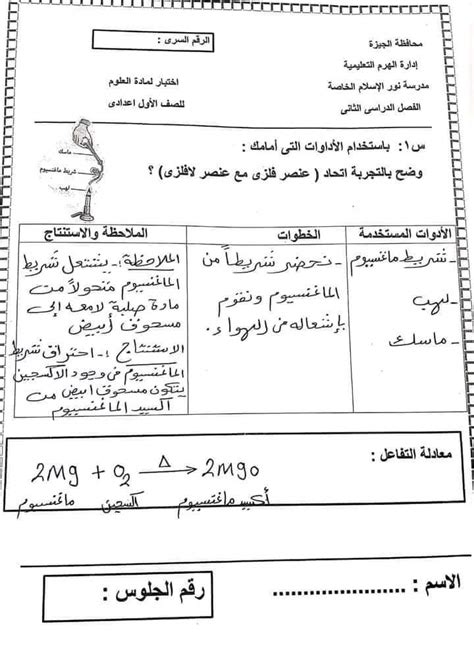 محافظة الجيزة
إدارة الهرم التعليمية
مدرسة نور الإسلام الخاصة
الفصل الدراسى الثانى
الرقم السرى :
اختبار لمادة العلوم
للصف الأول اعدادى
س١: باستخدام الأداوات التى أمامك :
وضح بالتجربة اتحاد ( عنصر فلزى مع عنصر لافلزى ) ؟
ماسك
شريط ماغنسيوم
لهب
الأدوات المستخدمة
- شريط ماغنسيوم
- لهب
- ماسك
الخطوات
- نحضر شريطاً من
الماغنسيوم ونقوم
بإشعاله من الهواء.
الملاحظة والاستنتاج
الملاحظة :- يشتعل شريط
الماغنسيوم متحولاً من
مادة صلبة لامعه إلى
مسحوق أبيض
الاستنتاج :- احتراق شريط
الماغنسيوم فى وجود الاكسجين
يتكون مسحوق ابيض من
اكسيد الماغنسيوم
معادلة التفاعل :
2Mg + O2 Δ→ 2Mgo
ماغنسيوم اكسجين أكسيد ماغنسيوم
الاسم : ......................
رقم الجلوس :